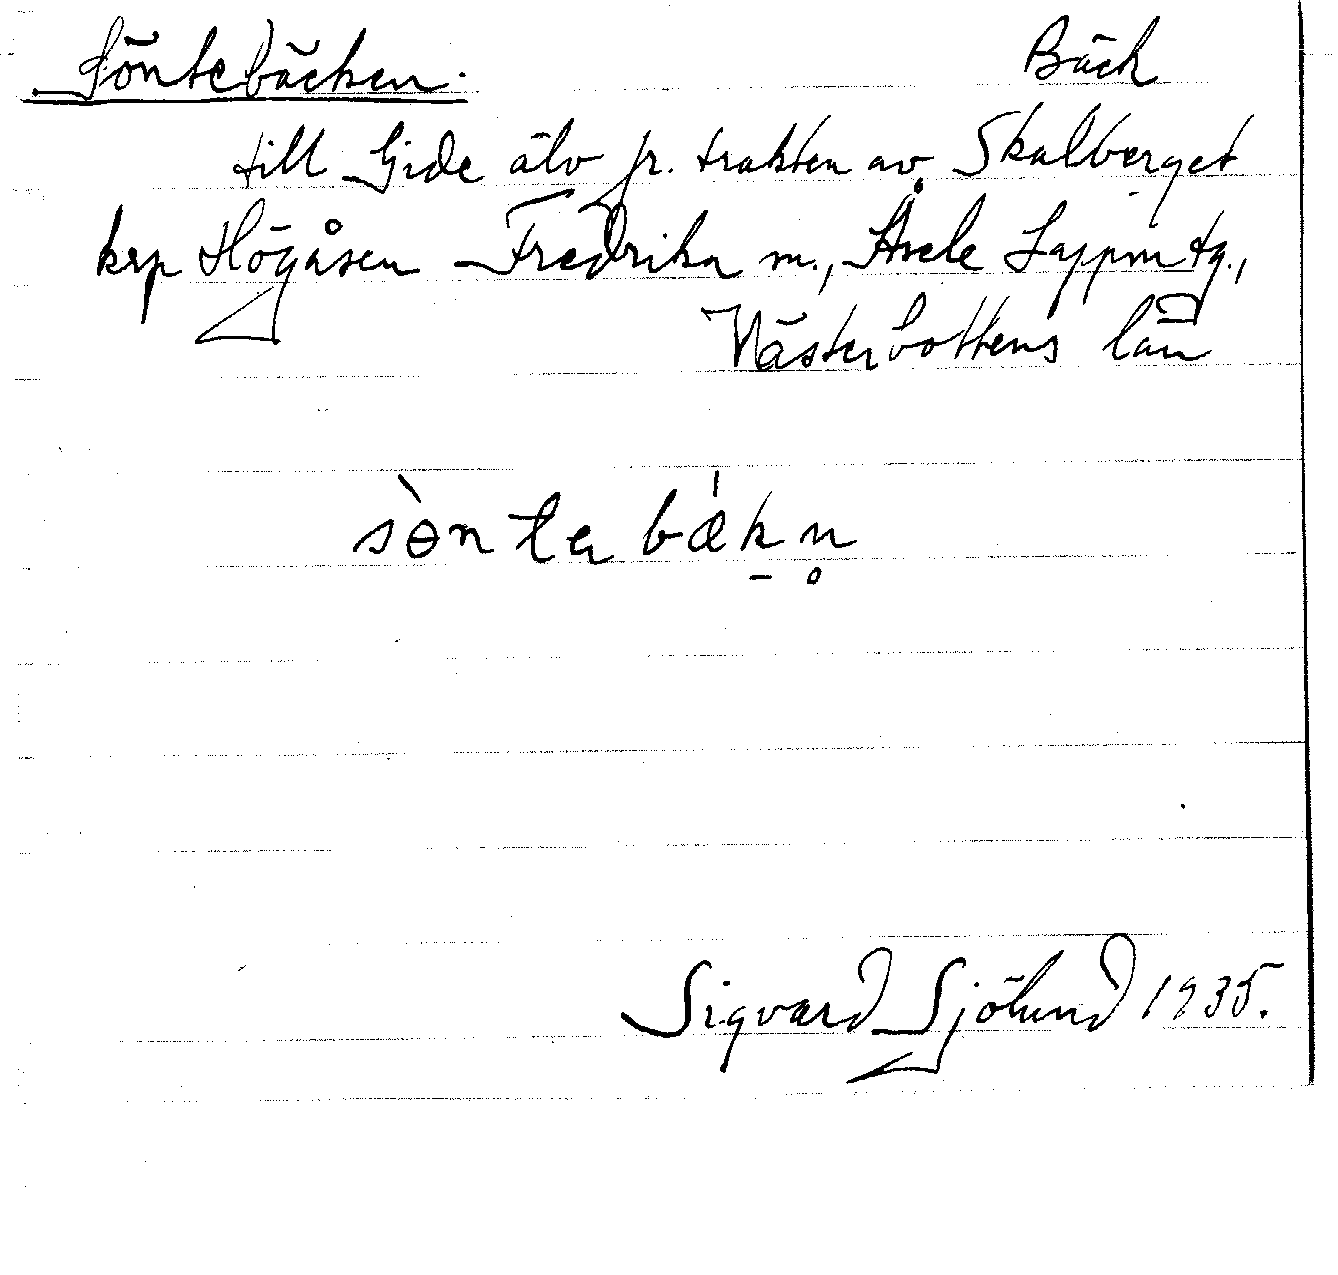 Söntebäcken. Bäck
till Gide älv fr. trakten av Skalberget
krp Högåsen Fredrika m., Åsele Lappm tg.,
Västerbottens län
sөnte bækn
Sigvard Sjölund 1935.